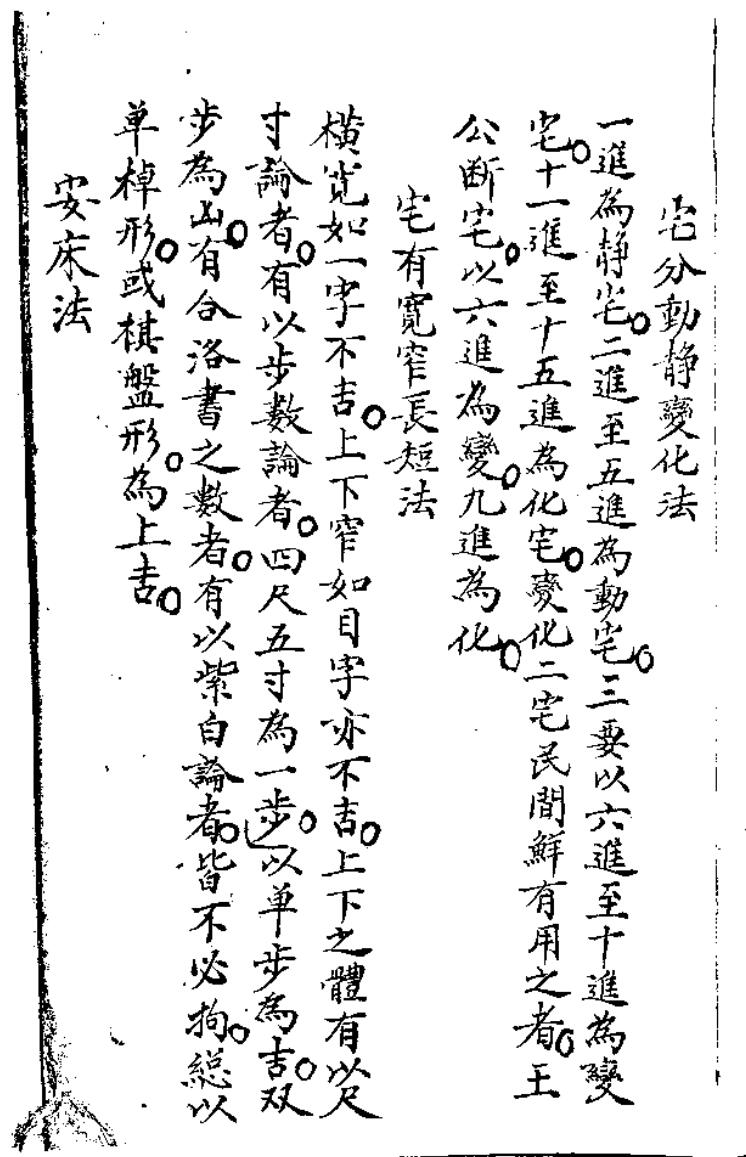 宅分動静變化法
一進為静宅。二進至五進為動宅。三要以六進至十進為變
宅。十一進至十五進為化宅。變化二宅民間鮮有用之者。王
公断宅。以六進為變。九進為化。
宅有寬窄長短法
橫寬如一字不吉。上下窄如目字亦不吉。上下之體有以尺
寸論者。有以步數論者。四尺五寸為一步。以单步為吉。双
步為凶。有合洛書之數者。有以紫白論者。皆不必拘。總以
单棹形。或棋盤形。為上吉。
安床法